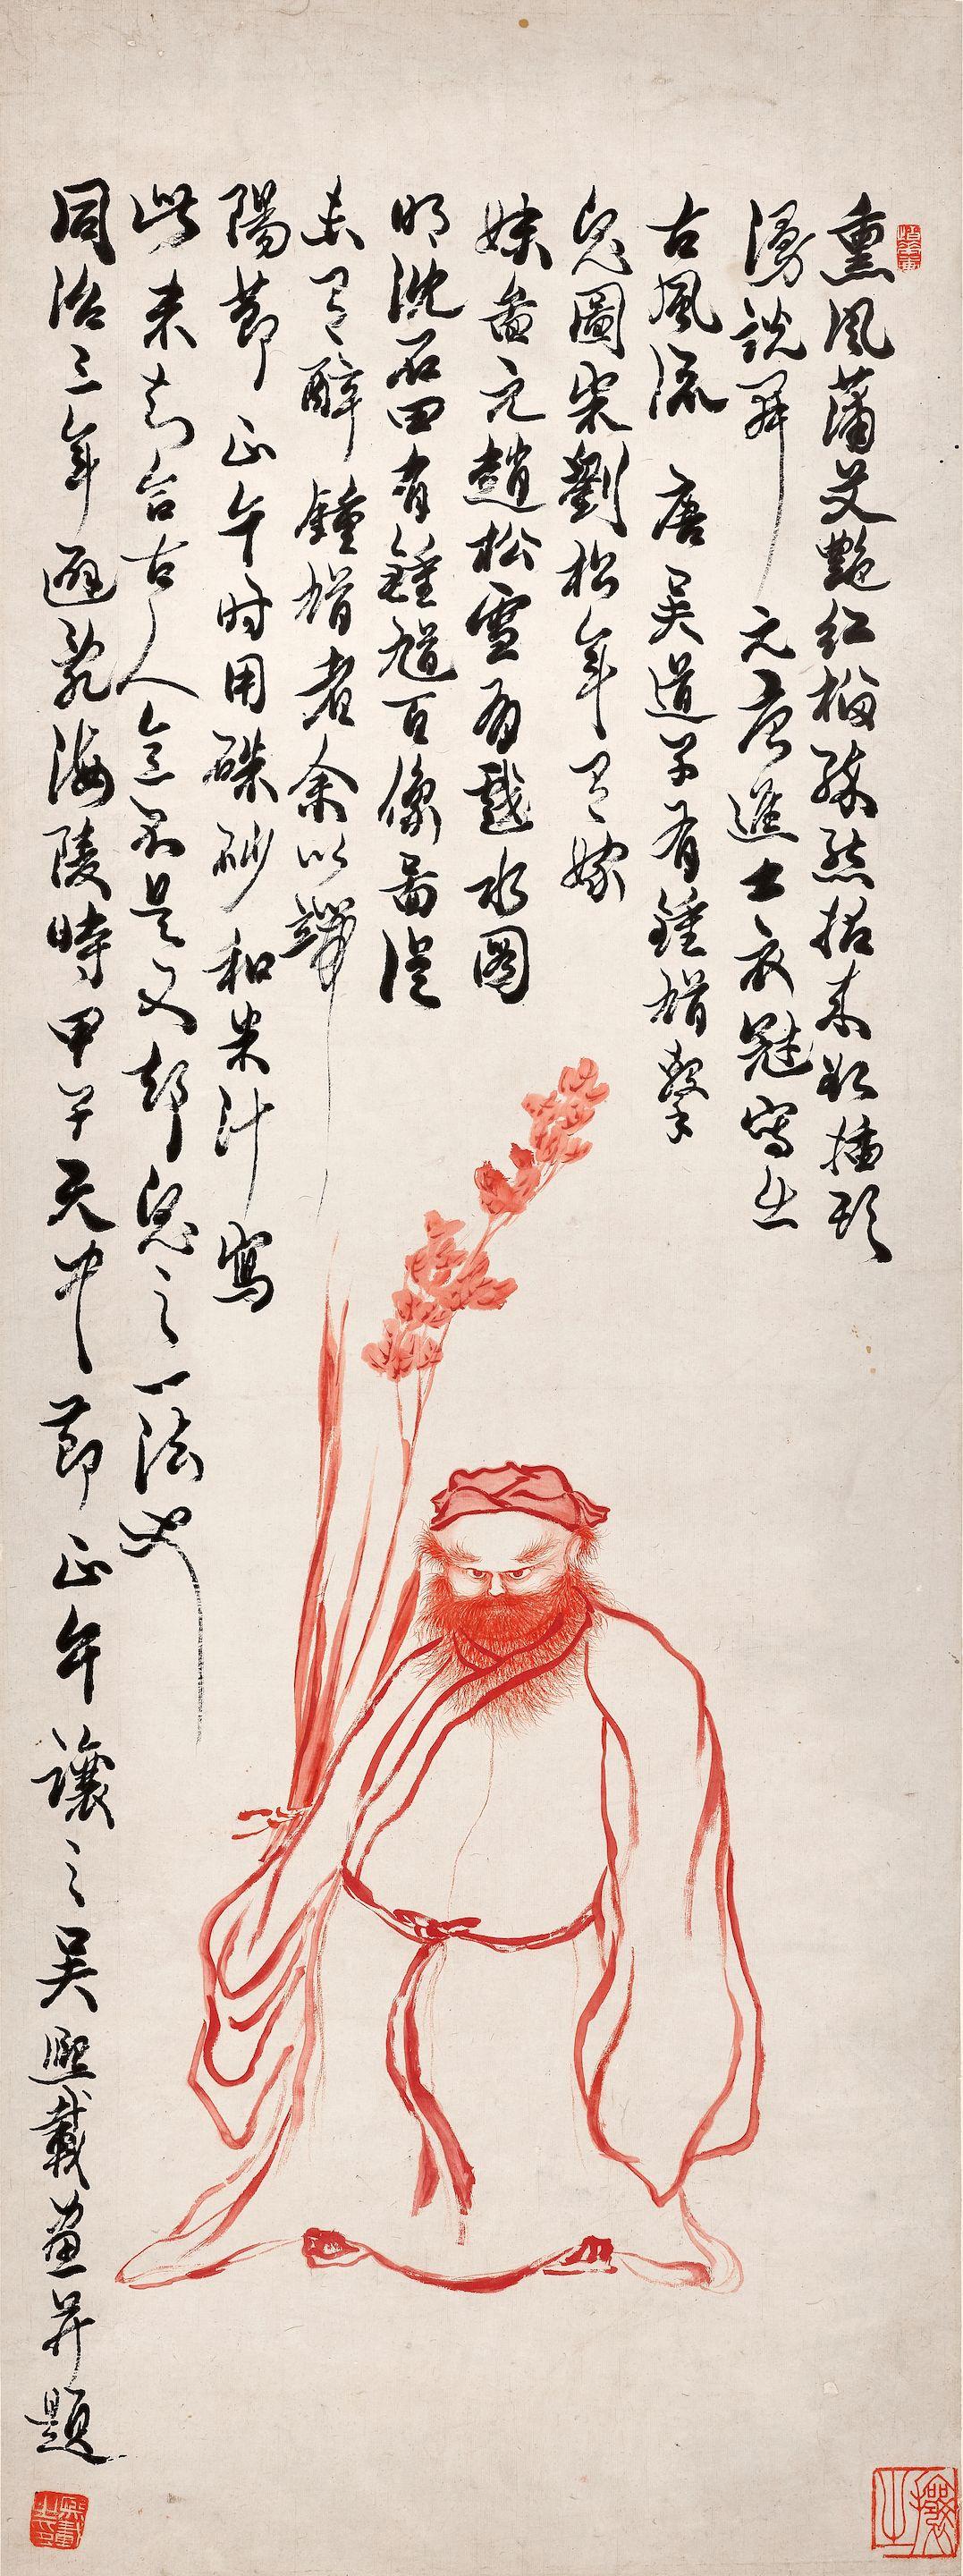 熏風蒲艾艷紅榴殊熊招來收插頭
漫説
元夜進士衣冠寫出
古風流 唐吳道子有鍾馗擊
鬼圖宋劉松年有嫁
妹圖元趙松雪有戲水圖
明沈石田有鍾馗百像圖從
未有醉鍾馗者余以端
陽節正午时用硃砂和朱汁寫
此未知合古人意不是又却鬼之一法也
同治三年避亂海陵時甲子天中節正午讓之吳熙載畫并題